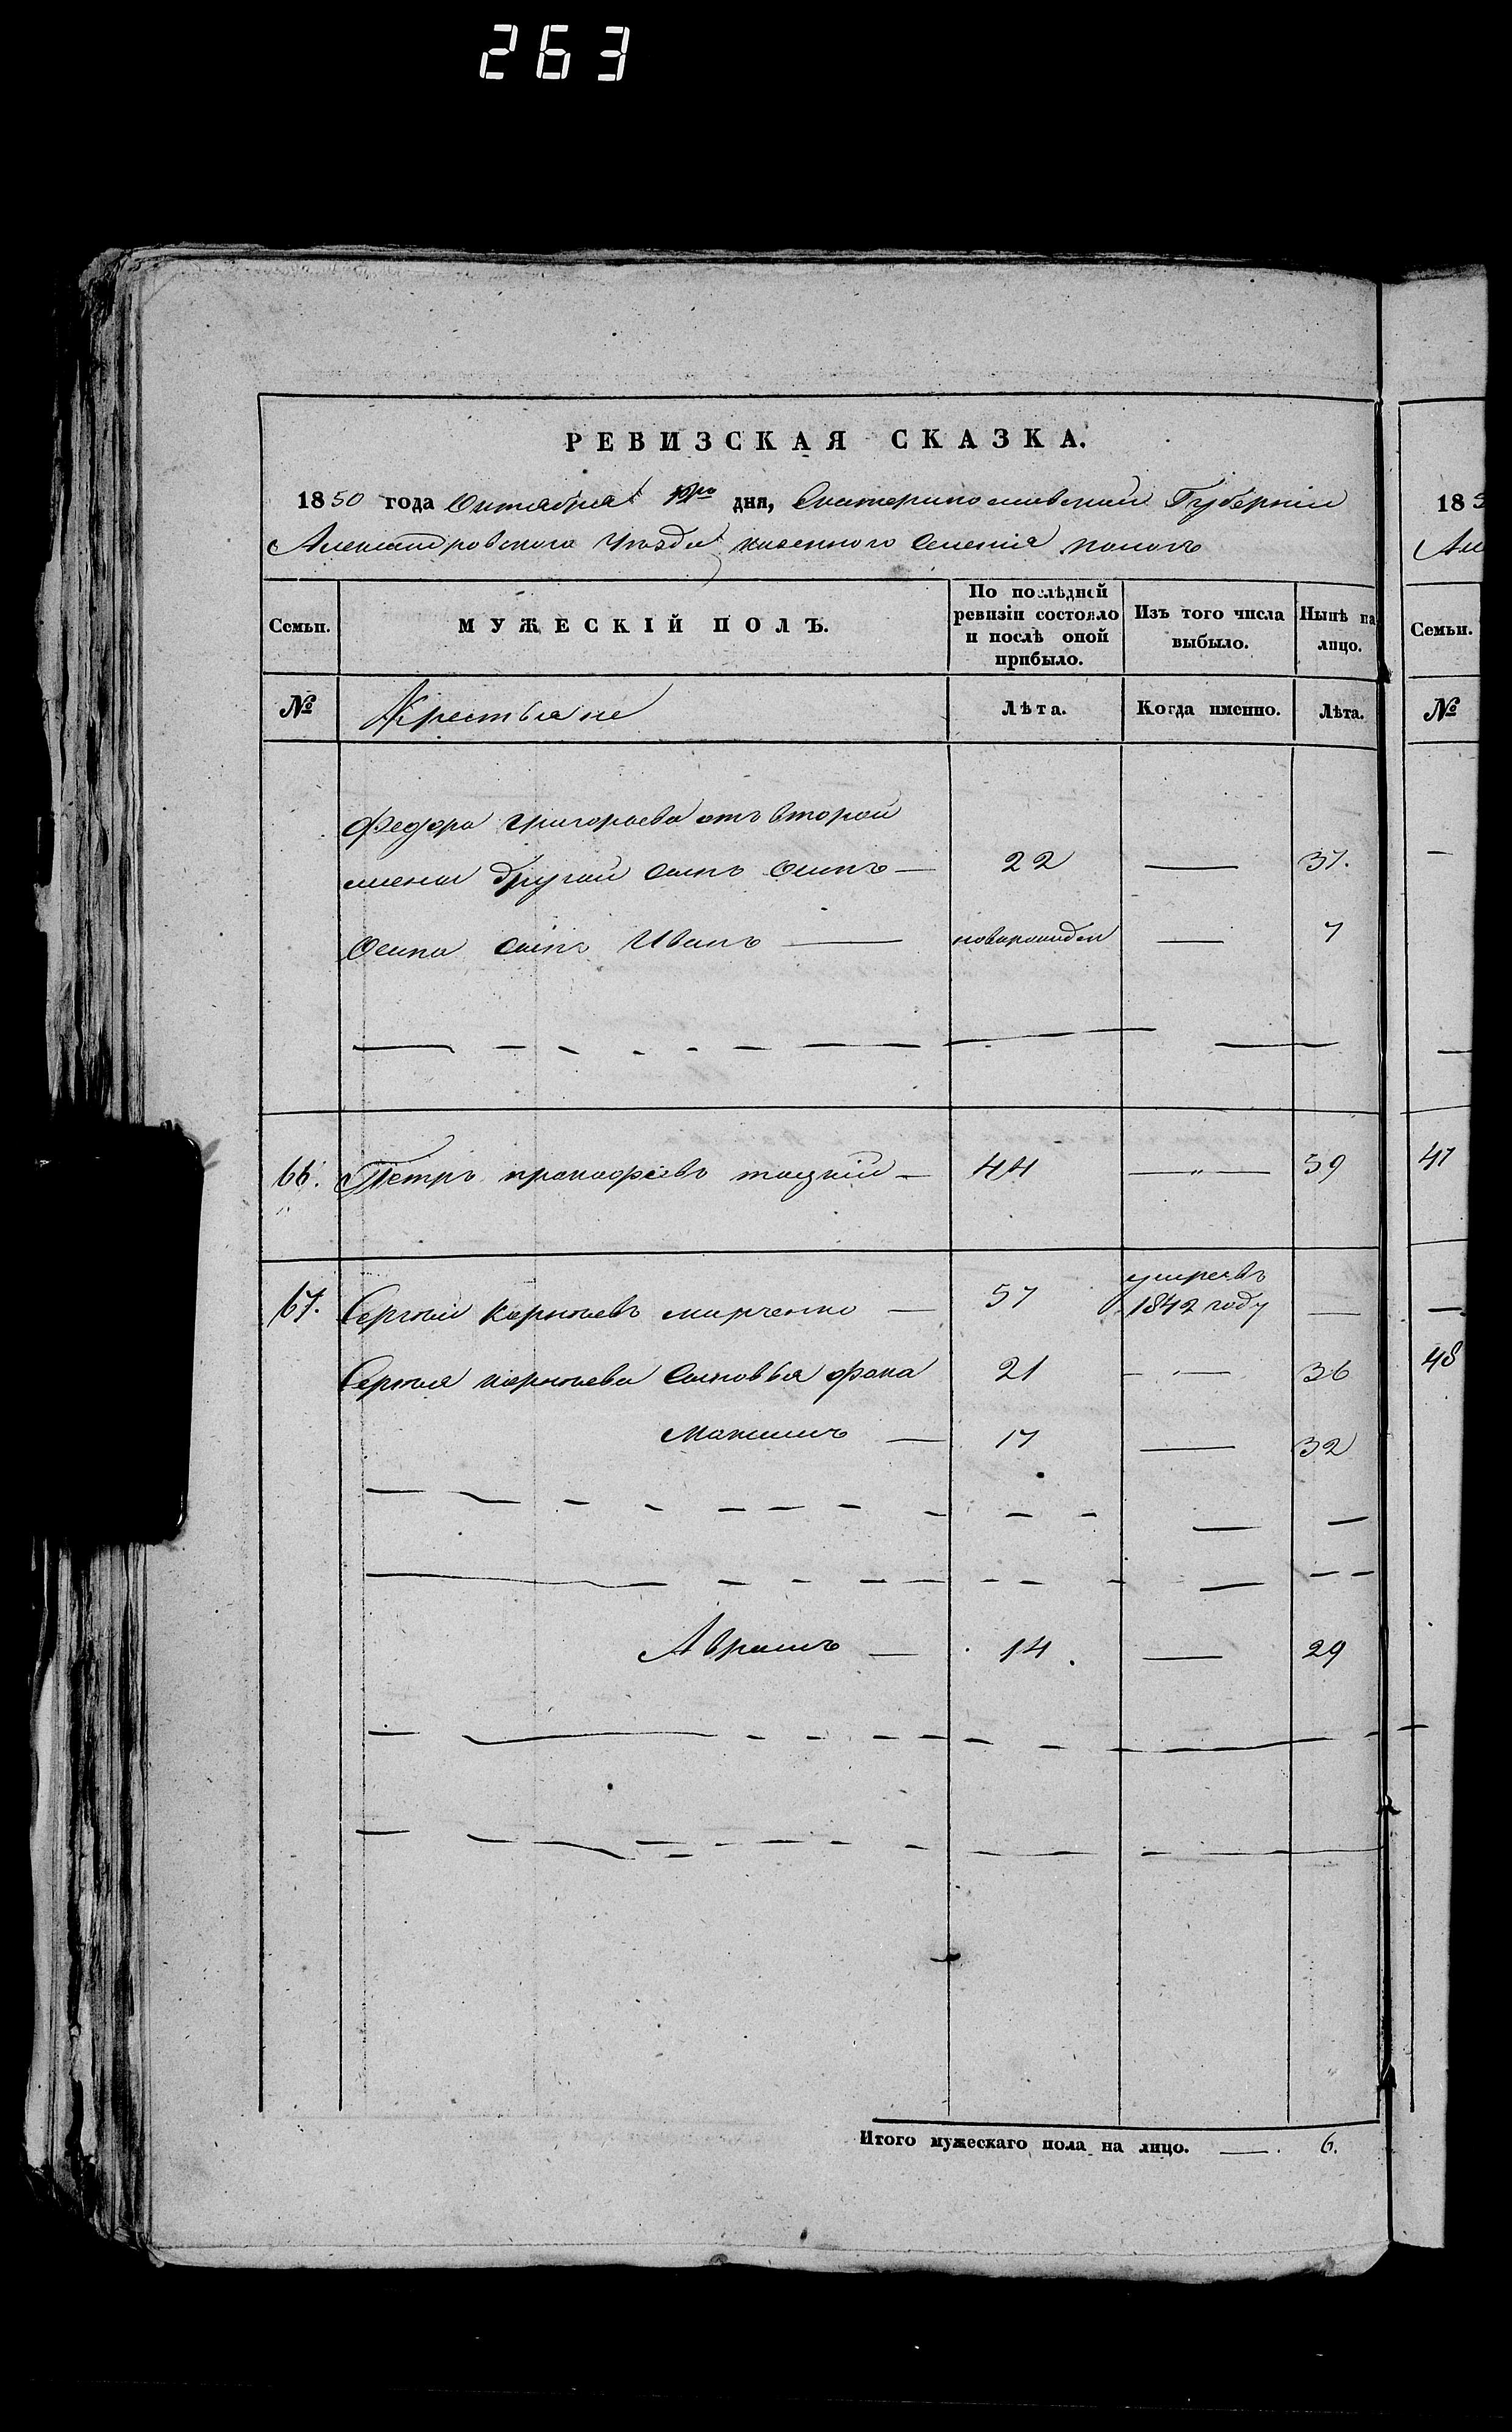 263
РЕВИЗСКАЯ СКАЗКА.
1850 года Октября дня, Екатеринославской Губерніи
Александровского Уѣзда казенного Селенія Пологъ
Семьи. МУЖЕСКІЙ ПОЛЪ. По послѣдней ревизіи состояло и послѣ оной прибыло. Изъ того числа выбыло. Нынѣ на лицо.
№ Крестьяне Лѣта. Когда именно. Лѣта.
Федора Григорьева отъ второй
жены другой сынъ Осипъ — 22 — 37.
Осипа сынъ Иванъ — новорожден — 7
66. Петръ Прокофьевъ — 44 — " — 59
67. Сергѣй Корнѣевъ Марченко — 57 умре въ
1842 году —
Сергѣя Корнѣева сыновья Фока 21 — 36
Максимъ — 17 — 32
Аврамъ — 14. — 29
Итого мужескаго пола на лицо. — . 6.
185
Але
Семьи.
№
47
48